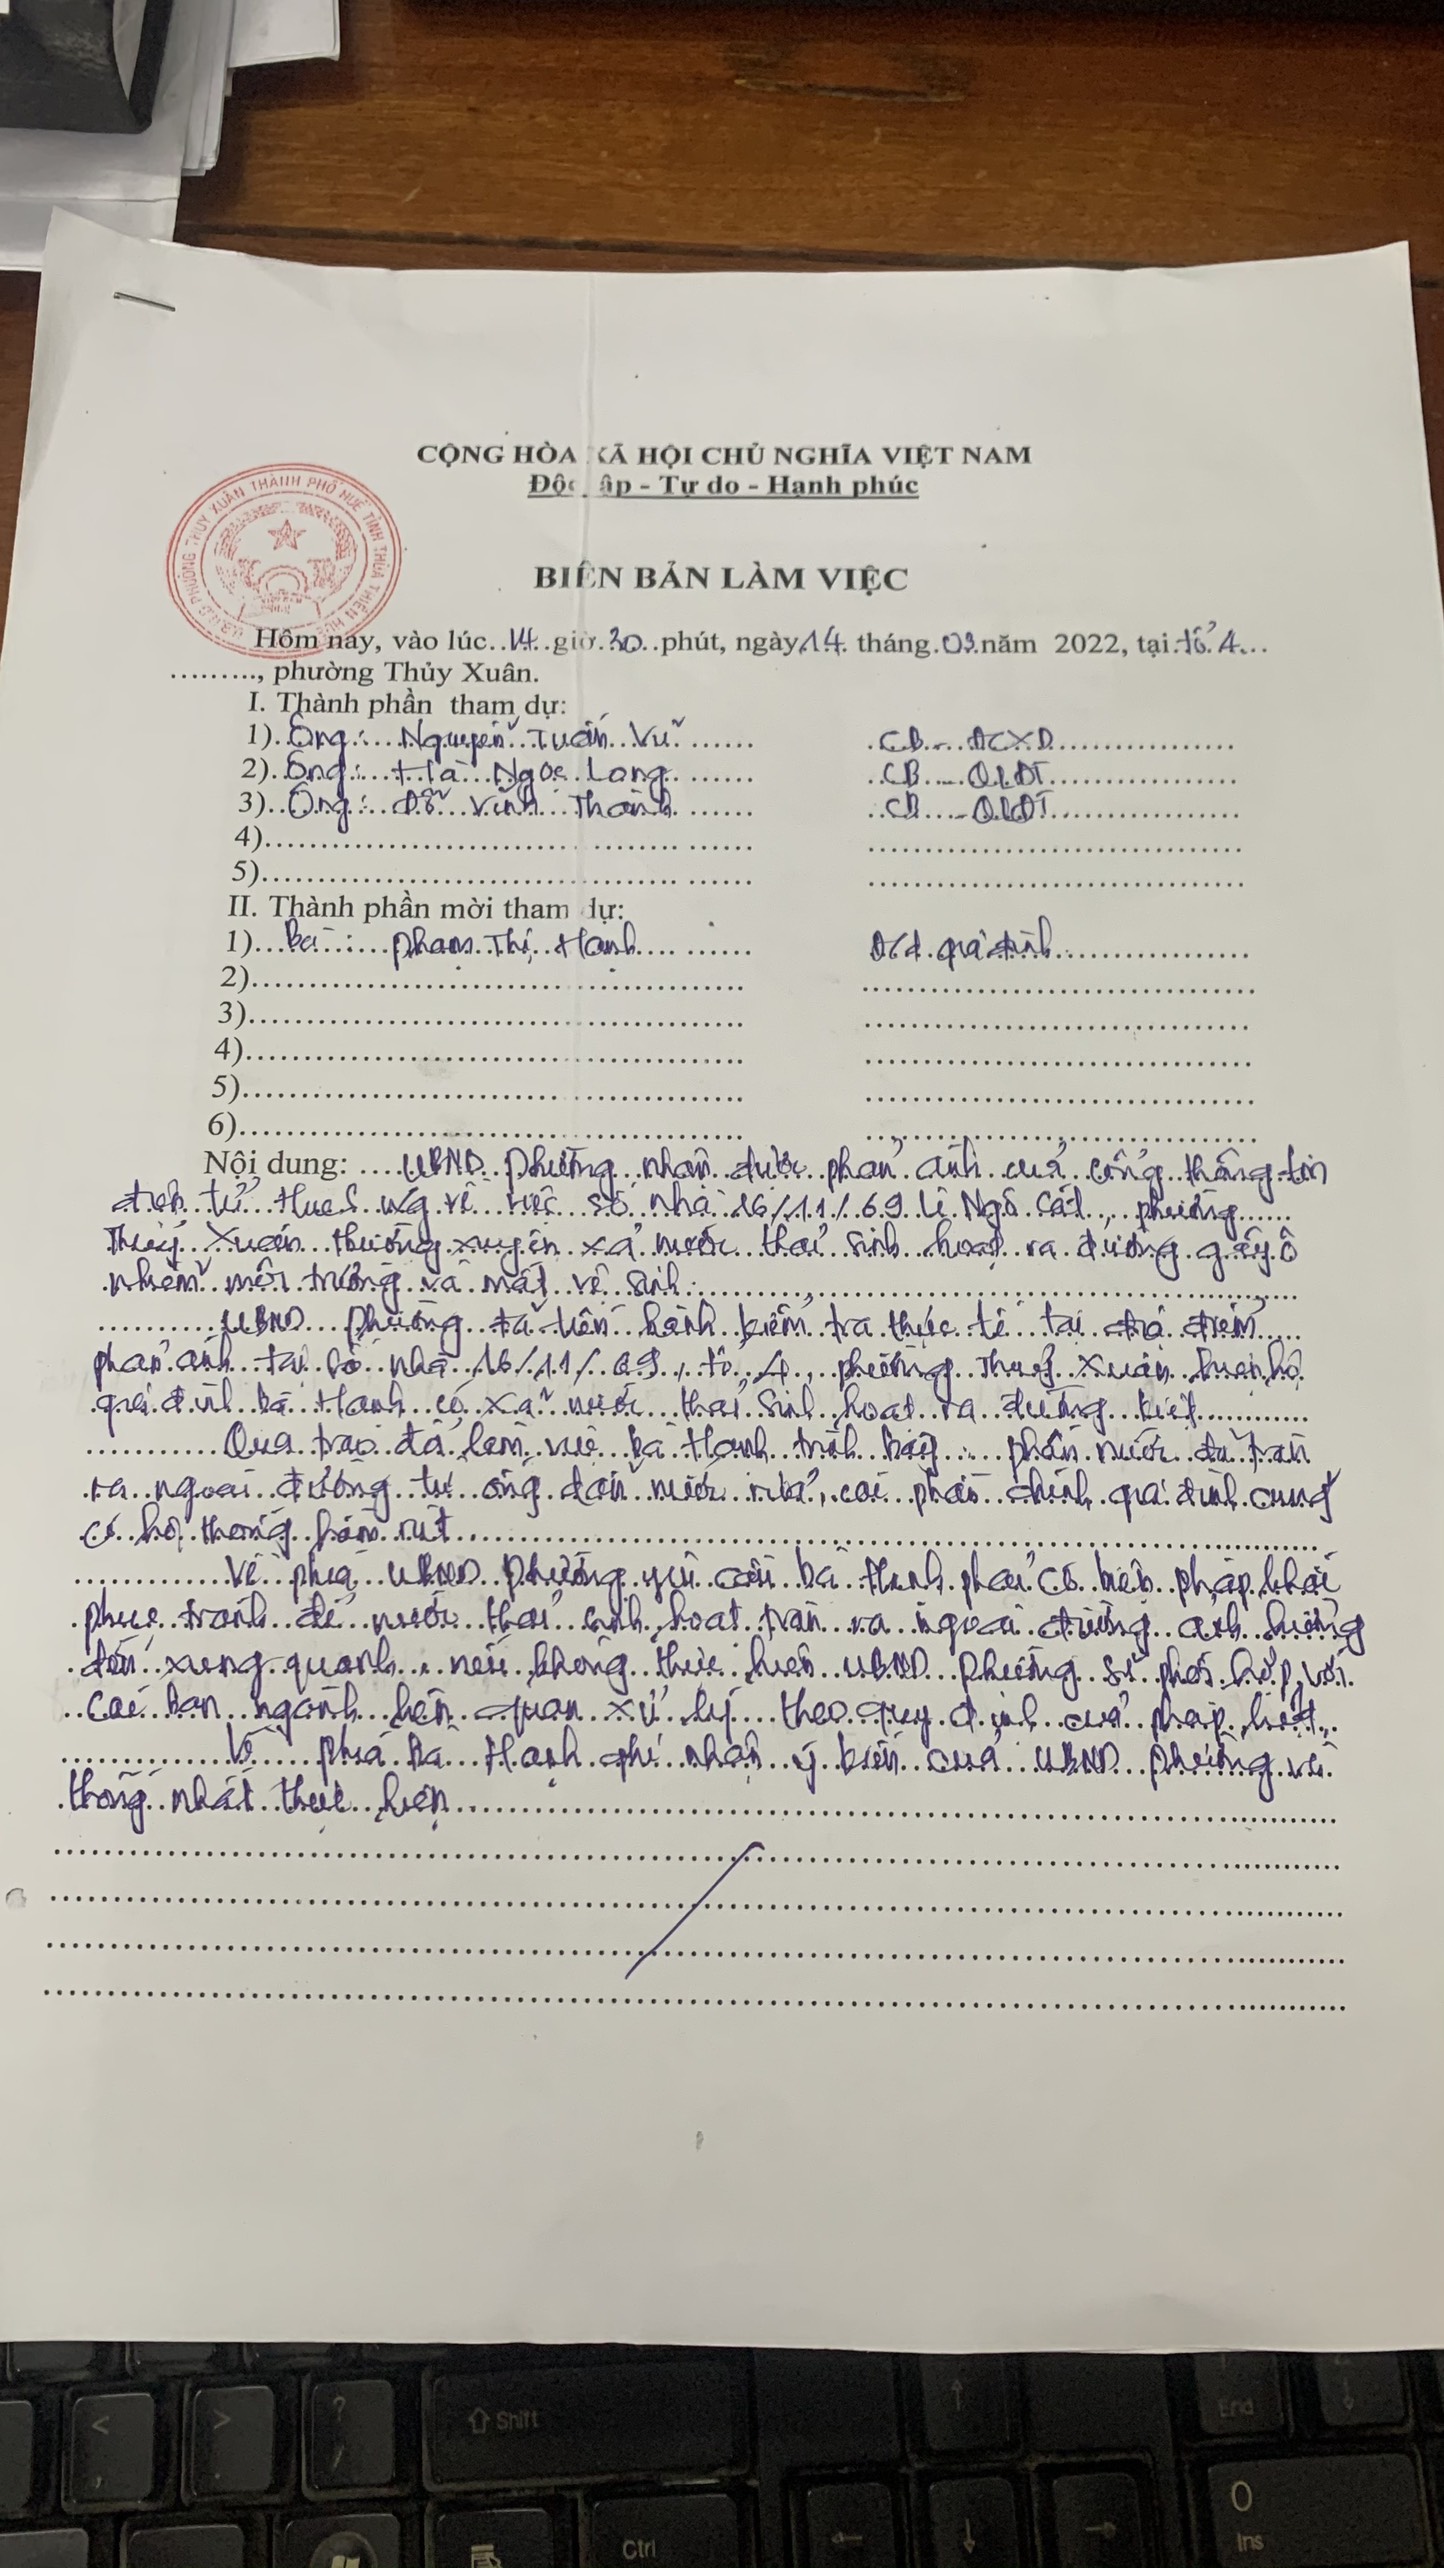 CỘNG HÒA XÃ HỘI CHỦ NGHĨA VIỆT NAM
Độc lập - Tự do - Hạnh phúc
U.B.N.D PHƯỜNG THỦY XUÂN THÀNH PHỐ HUẾ TỈNH THỪA THIÊN HUẾ
BIÊN BẢN LÀM VIỆC
Hôm nay, vào lúc..14..giờ.30..phút, ngày.14. tháng.03.năm 2022, tại.tổ 4...
........., phường Thủy Xuân.
I. Thành phần tham dự:
1)..Ông:...Nguyễn Tuấn Vũ...... CB - ĐCXD
2)..Ông:...Hà Ngọc Long...... CB - QLĐT
3)..Ông:..Đỗ Vĩnh Thành...... CB - QLĐT
4)
5)
II. Thành phần mời tham dự:
1)...Bà:....Phạm Thị Hạnh...... Đ/d gia đình
2)
3)
4)
5)
6)
Nội dung: ....UBND phường nhận được phản ánh của cổng thông tin
điện tử HueS về việc số nhà 16/11/69 Lê Ngô Cát, phường
Thủy Xuân thường xuyên xả nước thải sinh hoạt ra đường gây ô
nhiễm môi trường và mất vệ sinh.
UBND phường đã tiến hành kiểm tra thực tế tại địa điểm
phản ánh tại số nhà 16/11/69, tổ 4, phường Thủy Xuân, hộ
gia đình bà Hạnh có xả nước thải sinh hoạt ra đường kiệt
Qua trao đổi làm việc bà Hạnh trình bày: phần nước tràn
ra ngoài đường từ ống dẫn nước rửa, còn phần chính gia đình cũng
có hệ thống hầm rút
Về phía UBND phường yêu cầu bà Hạnh phải có biện pháp khắc
phục tránh để nước thải sinh hoạt tràn ra ngoài đường ảnh hưởng
đến xung quanh, nếu không thực hiện UBND phường sẽ phối hợp với
các ban ngành liên quan xử lý theo quy định của pháp luật.
Về phía bà Hạnh ghi nhận ý kiến của UBND phường và
thống nhất thực hiện
< , > . ? /
Shift
End
Ctrl
0
Ins